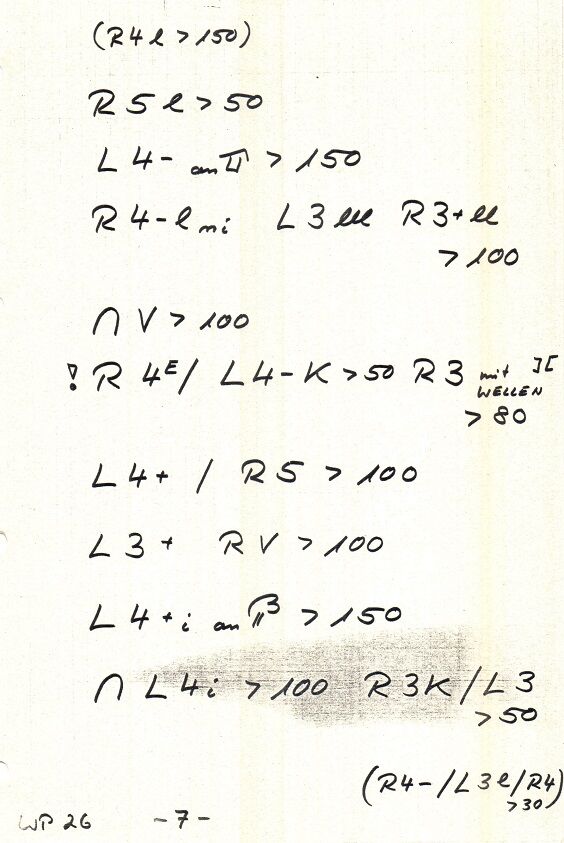 (R4l > 150)
R5l > 50
L4- an > 150
R4-l ni L3lll R3+ll
> 100
∩ V > 100
! R 4E/ L4-K > 50 R3 mit ][
WELLEN
> 80
L4+ / R5 > 100
L3+ RV > 100
L4+i an > 150
∩ L4i > 100 R3K/L3
> 50
(R4-/L3l/R4)
>30
WP 26 -7-